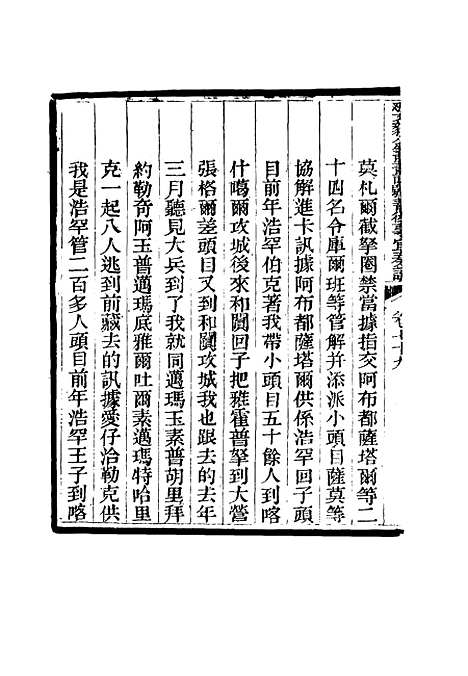 莫札爾截拏圈禁當據指交阿布都薩塔爾等二
十四名令庫爾班等管解并添派小頭目薩莫等
協解進卡訊據阿布都薩塔爾供係浩罕回子頭
目前年浩罕伯克著我帶小頭目五十餘人到喀
什噶爾攻城後來和闐回子把雅霍普拏到大營
張格爾差頭目又到和闐攻城我也跟去的去年
三月聽見大兵到了我就同邁瑪玉素普胡里拜
約勒奇阿玉普邁瑪底雅爾吐爾素邁瑪特哈里
克一起八人逃到前藏去的訊據愛仔洽勒克供
我是浩罕管二百多人頭目前年浩罕王子到喀